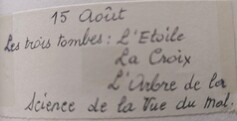 15 Août
Les trois tombes : L'Etoile
La Croix
L'Arbre de la
Science de la Vue du Mal.